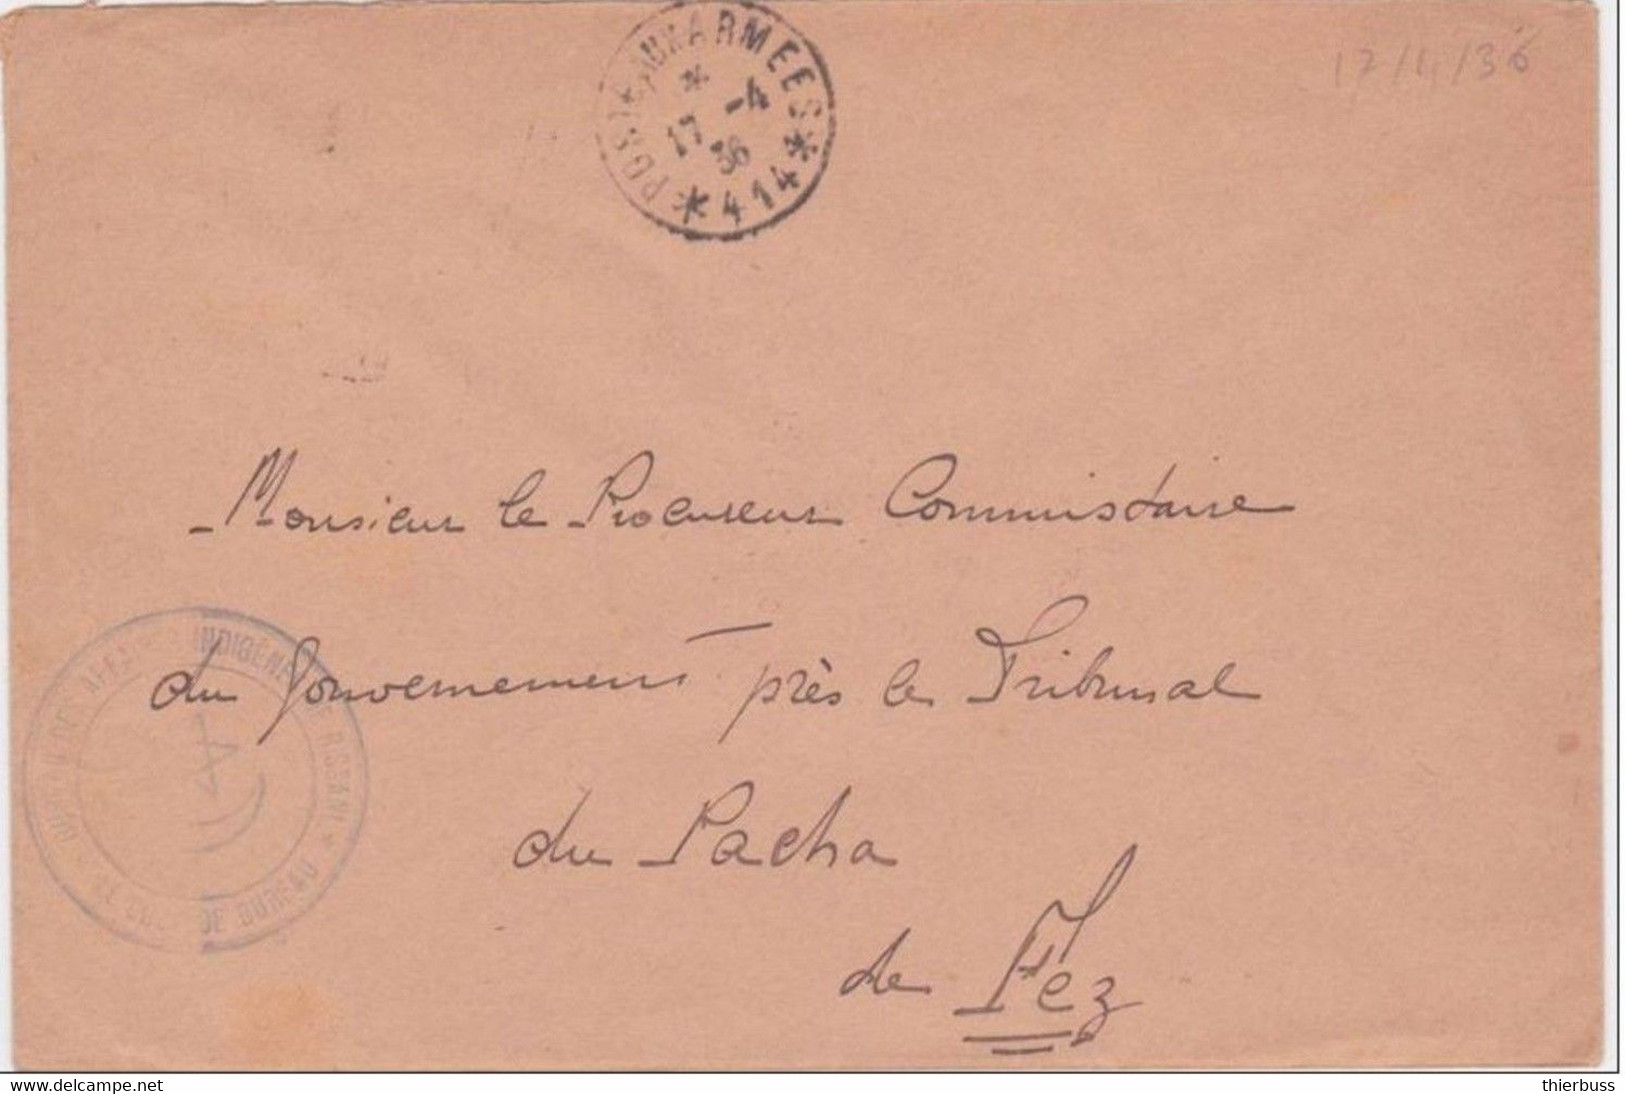 POSTE AUX ARMEES
* 17 -4 36
* 414 *
17/4/36
- Monsieur le Procureur Commissaire
du Gouvernement près le Tribunal
du Pacha
de Fez
BUREAU DES AFFAIRES INDIGÈNES DE RISSANI
* LE CHEF DE BUREAU *
www.delcampe.net
thierbuss